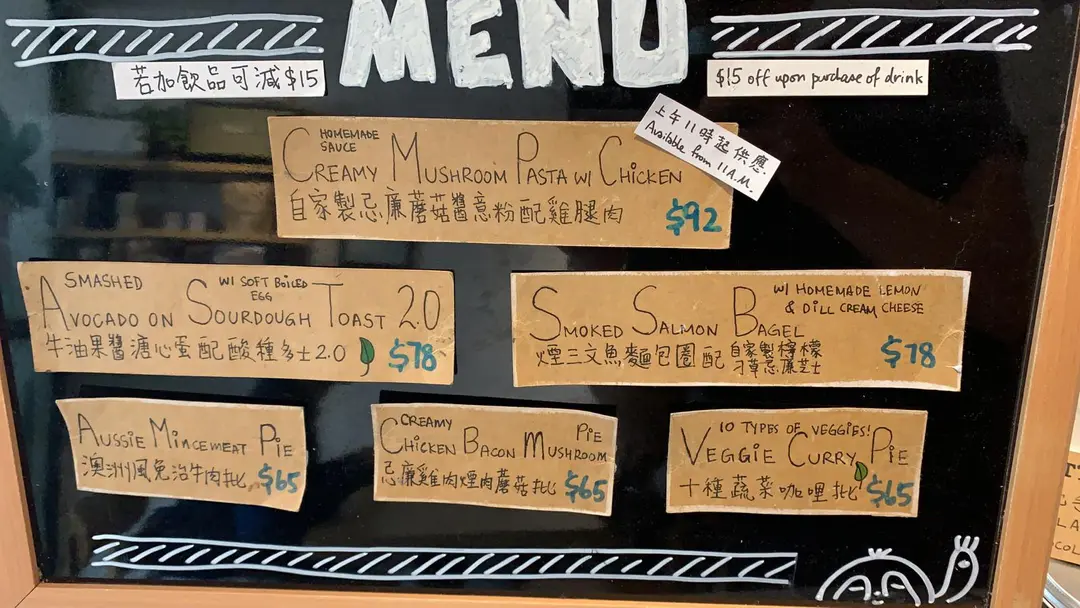 MENU
若加飲品可減$15
$15 off upon purchase of drink
上午11時起供應
Available from 11A.M.
HOMEMADE
SAUCE
CREAMY MUSHROOM PASTA W/ CHICKEN
自家製忌廉蘑菇醬意粉配雞腿肉 $92
SMASHED
W/ SOFT BOILED
EGG
AVOCADO ON SOURDOUGH TOAST 2.0
牛油果醬溏心蛋配酸種多士2.0 $78
W/ HOMEMADE LEMON
& DILL CREAM CHEESE
SMOKED SALMON BAGEL
煙三文魚麵包圈配 自家製檸檬
刁草忌廉芝士
$78
AUSSIE MINCEMEAT PIE
澳洲風免治牛肉批 $65
CREAMY
CHICKEN BACON MUSHROOM PIE
忌廉雞肉煙肉蘑菇批 $65
10 TYPES OF VEGGIES!
VEGGIE CURRY PIE
十種蔬菜咖哩批 $65